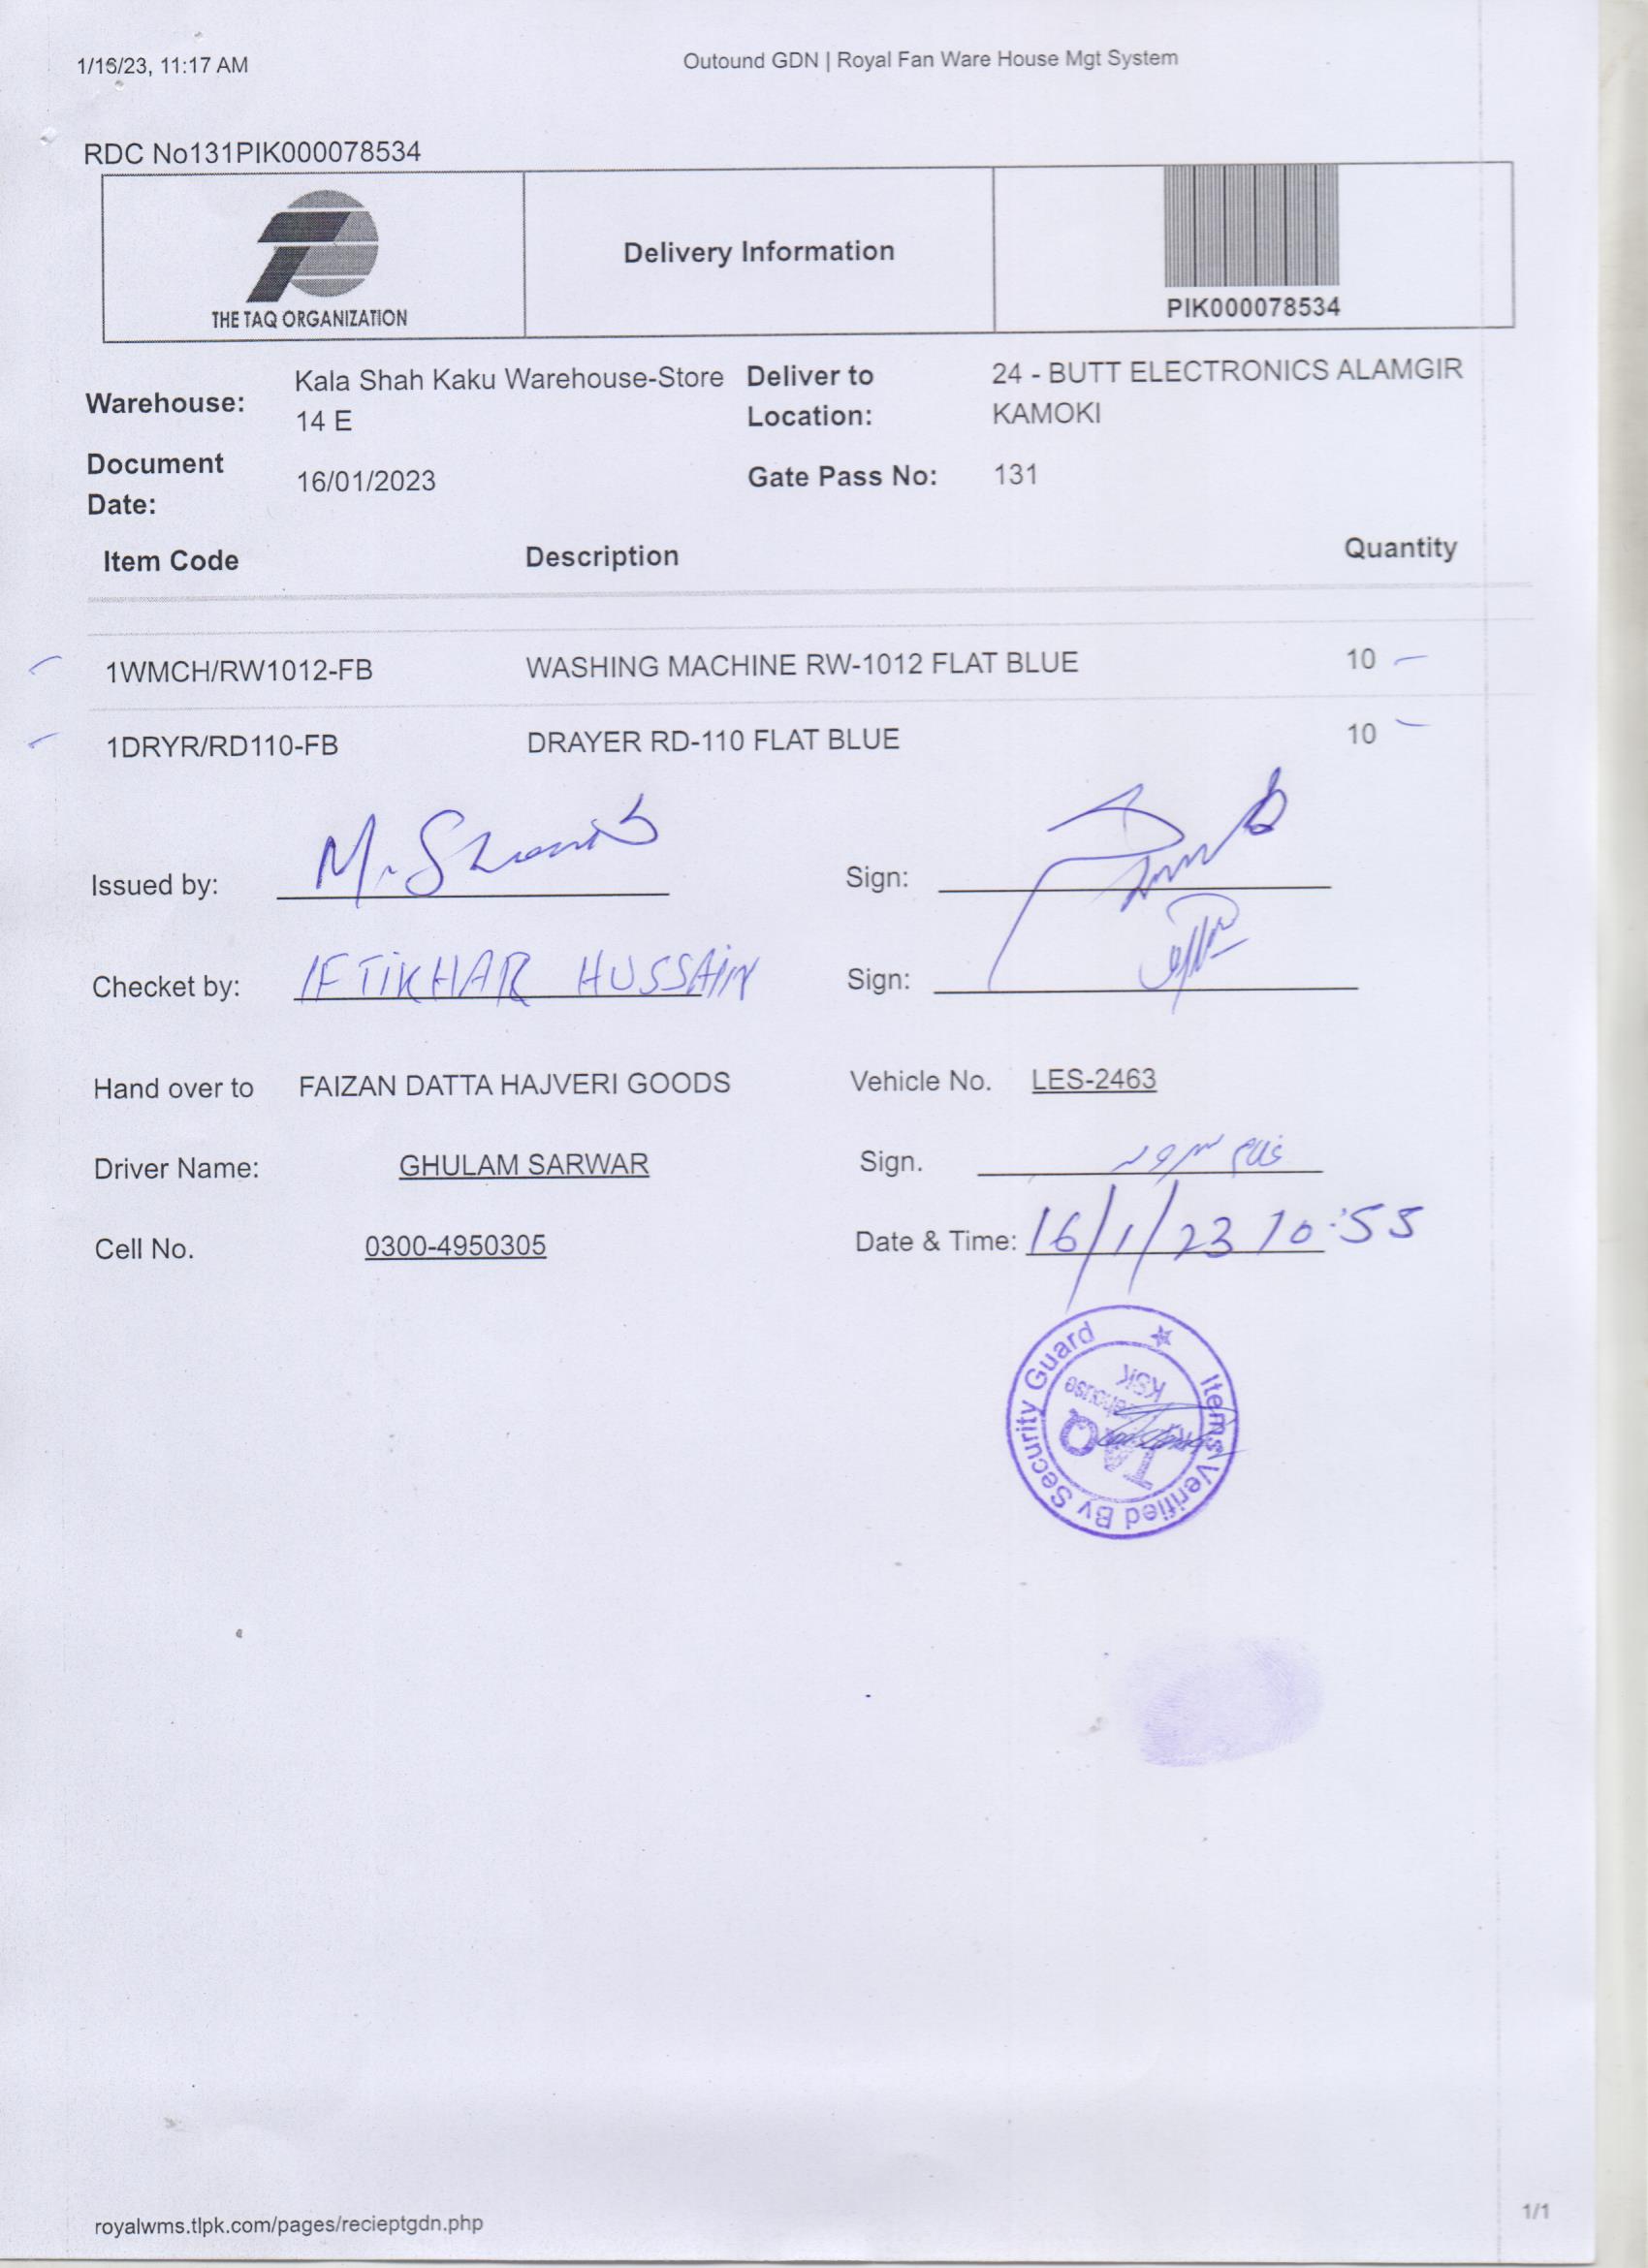 1/16/23, 11:17 AM
Outound GDN | Royal Fan Ware House Mgt System
RDC No131PIK000078534
THE TAQ ORGANIZATION
Delivery Information
PIK000078534
Warehouse: Kala Shah Kaku Warehouse-Store 14 E
Deliver to Location: 24 - BUTT ELECTRONICS ALAMGIR KAMOKI
Document Date: 16/01/2023
Gate Pass No: 131
Item Code Description Quantity
1WMCH/RW1012-FB WASHING MACHINE RW-1012 FLAT BLUE 10
1DRYR/RD110-FB DRAYER RD-110 FLAT BLUE 10
Issued by: Sign:
Checket by: IFTIKHAR HUSSAIN Sign:
Hand over to FAIZAN DATTA HAJVERI GOODS Vehicle No. LES-2463
Driver Name: GHULAM SARWAR Sign. غلام سرور
Cell No. 0300-4950305 Date & Time: 16/1/23 10:55
Items Verified By Security Guard
TAQ
KSK
royalwms.tlpk.com/pages/recieptgdn.php
1/1